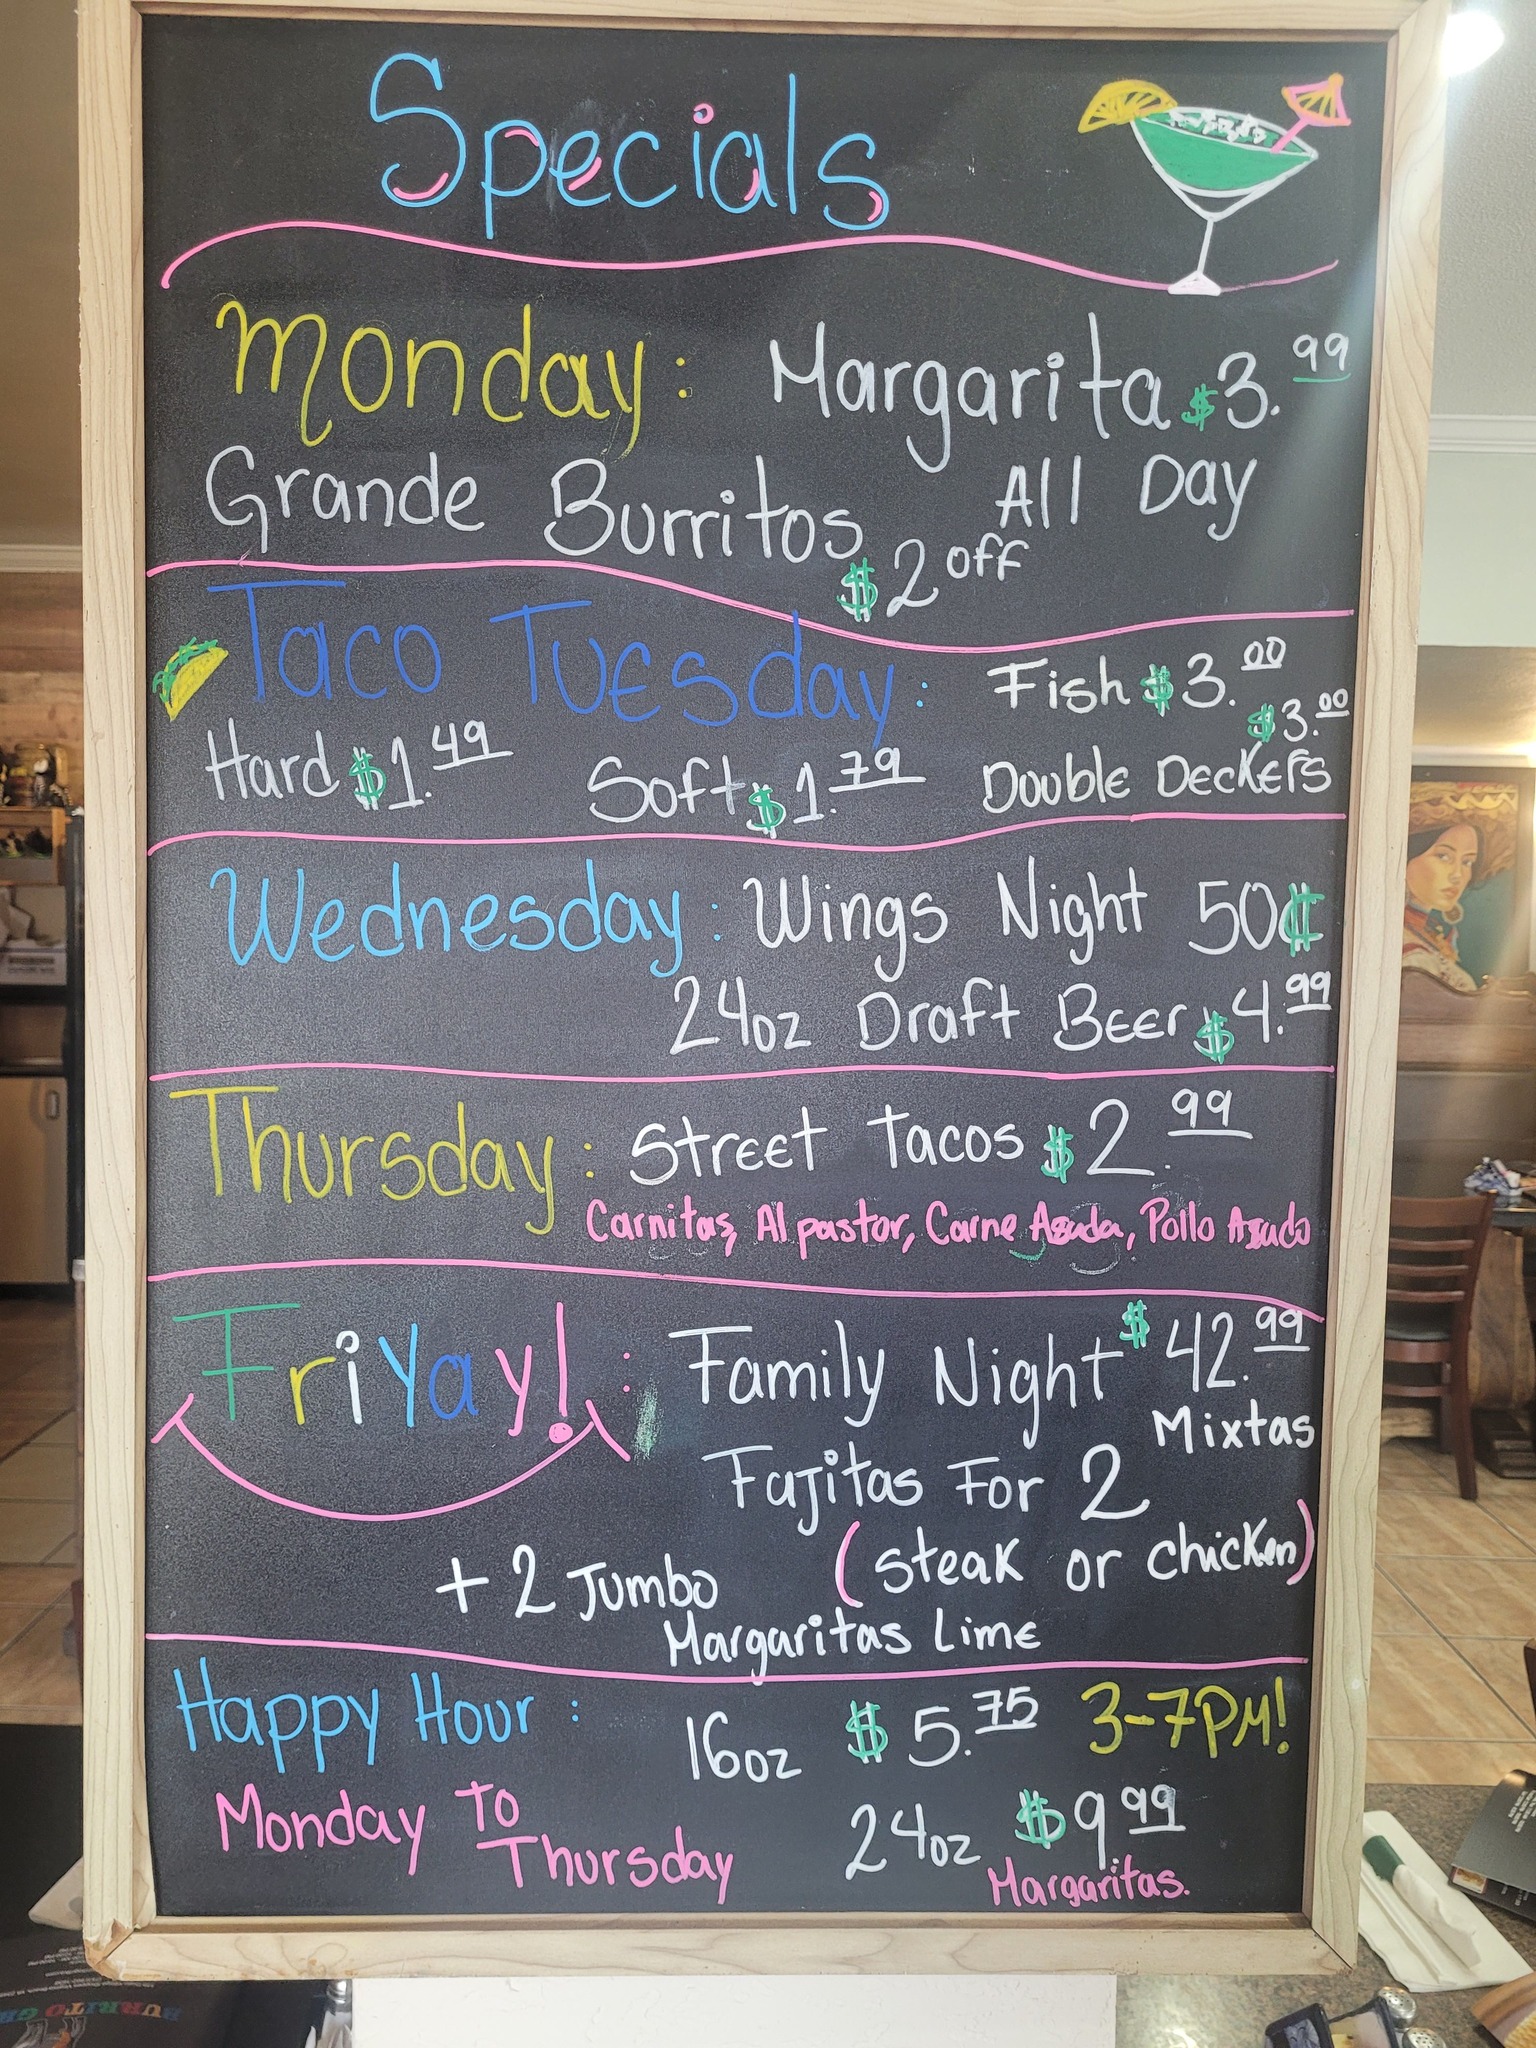 Specials
Monday: Margarita $3.99
Grande Burritos All Day
$2 off
Taco Tuesday: Fish $3.00
$3.00
Hard $1.49 Soft $1.79 Double Deckers
Wednesday: Wings Night 50¢
24oz Draft Beer $4.99
Thursday: Street Tacos $2.99
Carnitas, Al pastor, Carne Asada, Pollo Asado
FriYay!: Family Night $42.99
Mixtas
Fajitas For 2
(steak or chicken)
+ 2 Jumbo
Margaritas Lime
Happy Hour: 16oz $5.75 3-7PM!
Monday To Thursday 24oz $9.99
Margaritas.